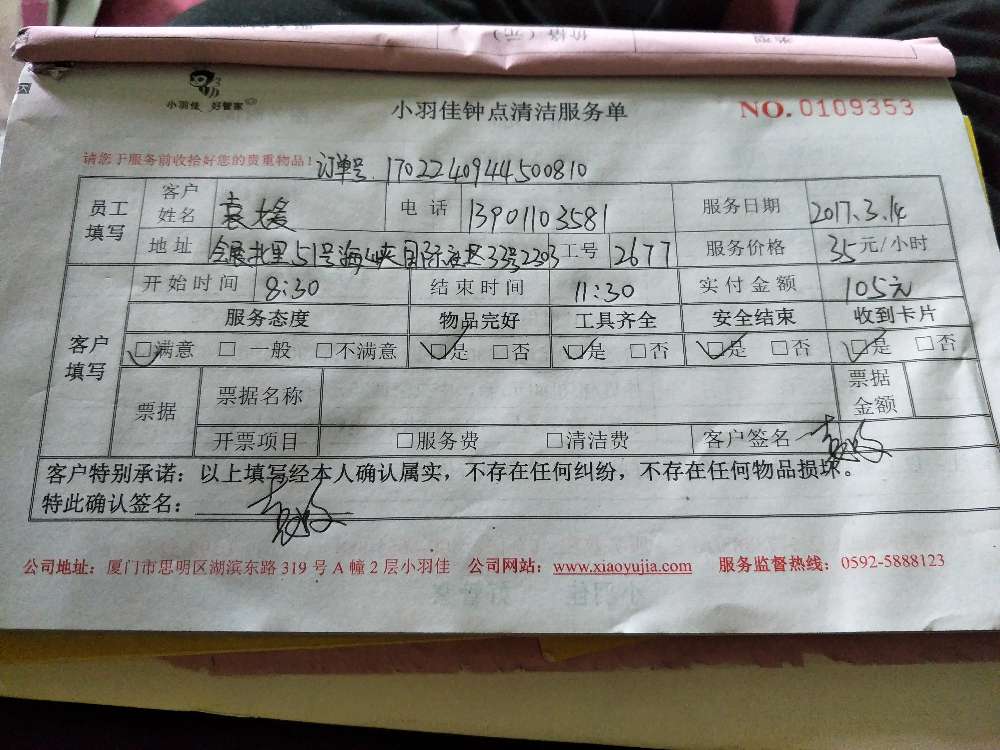 价格（元）
小羽佳 好管家
小羽佳钟点清洁服务单
NO.0109353
请您于服务前收拾好您的贵重物品！
订单号 1702240944500810
员工填写
客户姓名 袁媛 电话 13901103581 服务日期 2017.3.14
地址 会展北里51号海峡国际社区3号2303 工号 2677 服务价格 35元/小时
客户填写
开始时间 8:30 结束时间 11:30 实付金额 105元
服务态度 物品完好 工具齐全 安全结束 收到卡片
☑满意 □一般 □不满意 ☑是 □否 ☑是 □否 ☑是 □否 ☑是 □否
票据 票据名称 票据金额
开票项目 □服务费 □清洁费 客户签名
客户特别承诺：以上填写经本人确认属实，不存在任何纠纷，不存在任何物品损坏。
特此确认签名：
公司地址：厦门市思明区湖滨东路 319 号 A 幢 2 层小羽佳 公司网站：www.xiaoyujia.com 服务监督热线：0592-5888123